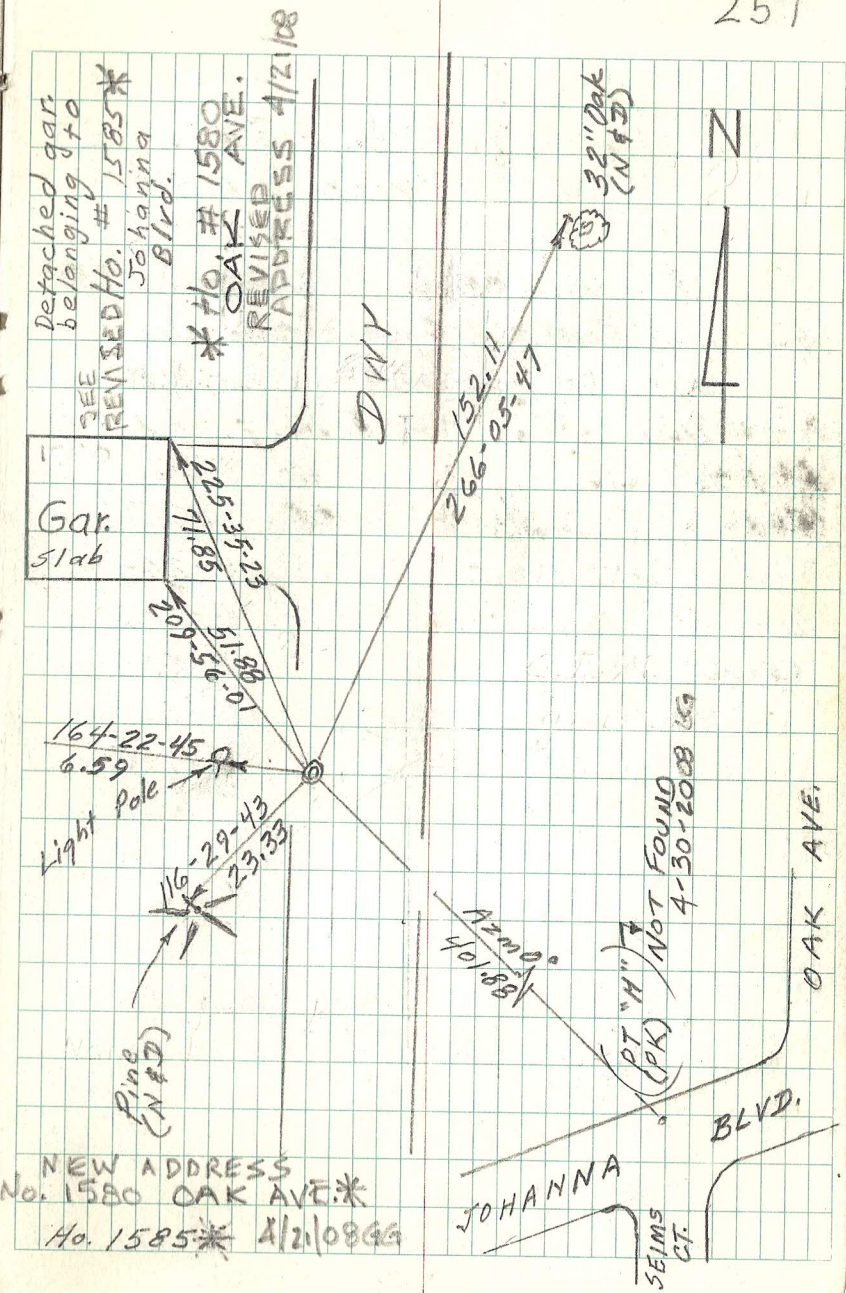 251
Detached gar.
belonging to
SEE
REVISED Ho. # 1585*
Johanna
Blvd.
* Ho. # 1580
OAK AVE.
REVISED
ADDRESS 4/21/08
Gar.
slab
DWY
32" Oak
(N & D)
N
225-35-23
71.85
209-59-01
51.88
152.11
266-05-47
164-22-45
6.59
Light Pole
116-29-43
23.33
Pine
(N & D)
Azm 0°
401.88
(PT "H")
(PK)
NOT FOUND
4-30-2008 GG
OAK AVE.
JOHANNA BLVD.
SEIMS
CT.
NEW ADDRESS
No. 1580 OAK AVE.*
Ho. 1585* 4/21/08 GG